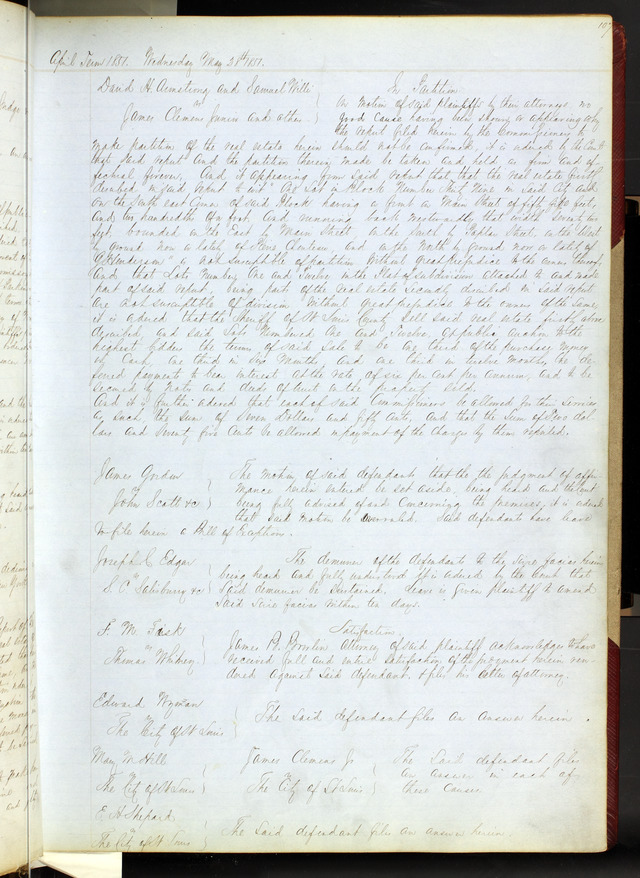 197
April Term 1851. Wednesday May 21st 1851.
David H. Armstrong and Samuel Willi
vs
James Clemens Junior and others
In Partition
On motion of said plaintiffs by their attorneys no
good cause having been shown or appearing why
the report filed herein by the Commissioners to
make partition of the real estate herein should not be confirmed, it is ordered by the Court
that said report and the partition therein made be taken and held as firm and ef-
fectual forever, And it appearing from said report that that the real estate firstly
described in said report to wit "As Lot in Block Number Sixty Nine in said City and
on the South east corner of said Block having a front on Main Street of fifty five feet,
and hundredths of a foot, and running back westwardly that width Seventy two
feet, bounded on the East by Main Street on the South by Poplar Street, on the West
by ground now or lately of Chouteau, and on the North by ground now or lately of
Henderson" is not Susceptible of partition without great prejudice to the owners thereof
And that Lots Numbers One and Twelve in the Plat of Subdivision attached to and made
part of said report, being part of the real estate Secondly described in said report
are not Susceptible of division without great prejudice to the owners of the Same,
it is ordered that the Sheriff of St Louis County Sell said real estate firstly above
described, and said Lots Numbered One and Twelve, at public auction to the
highest bidder the terms of said Sale to be one third of the purchase money
in Cash, one third in Six Months and one third in twelve months, the de-
ferred payments to bear interest at the rate of six per cent per annum, and to be
secured by Notes and deeds of trust on the property Sold.
And it is further ordered that each of said Commissioners be allowed for their services
as such, the Sum of Seven Dollars and fifty Cents, and that the Sum of Two dol-
lars and Seventy five Cents be allowed in payment of the charges by them reported.
James Gordon
vs
John Scott &c
The motion of said defendant that the the judgment of affir-
mance herein entered be set aside, being heard and the Court
being fully advised of and concerning the premises, it is ordered
that said motion be overruled. Said defendants have leave
to file herein a Bill of Exceptions.
Joseph C Edgar
vs
S. C. Salisbury &c
The demurrer of the defendants to the Scire facias herein
being heard and fully understood it is ordered by the Court that
Said demurrer be Sustained. Leave is given plaintiff to amend
Said Scire facias within ten days.
F. M.
vs
Thomas
Satisfaction
James B. attorney of said plaintiff acknowledges to have
received full and entire satisfaction of the judgment herein ren-
dered against said defendant, & files his letter of attorney.
Edward Wyman
vs
The City of St Louis
The Said defendant files an answer herein.
Mary M Hill
vs
The City of St Louis
James Clemens Jr
vs
The City of St Louis
The Said defendant files
an answer in each of
these Causes
E. H. Shepard
vs
The City of St Louis
The Said defendant files an answer herein.